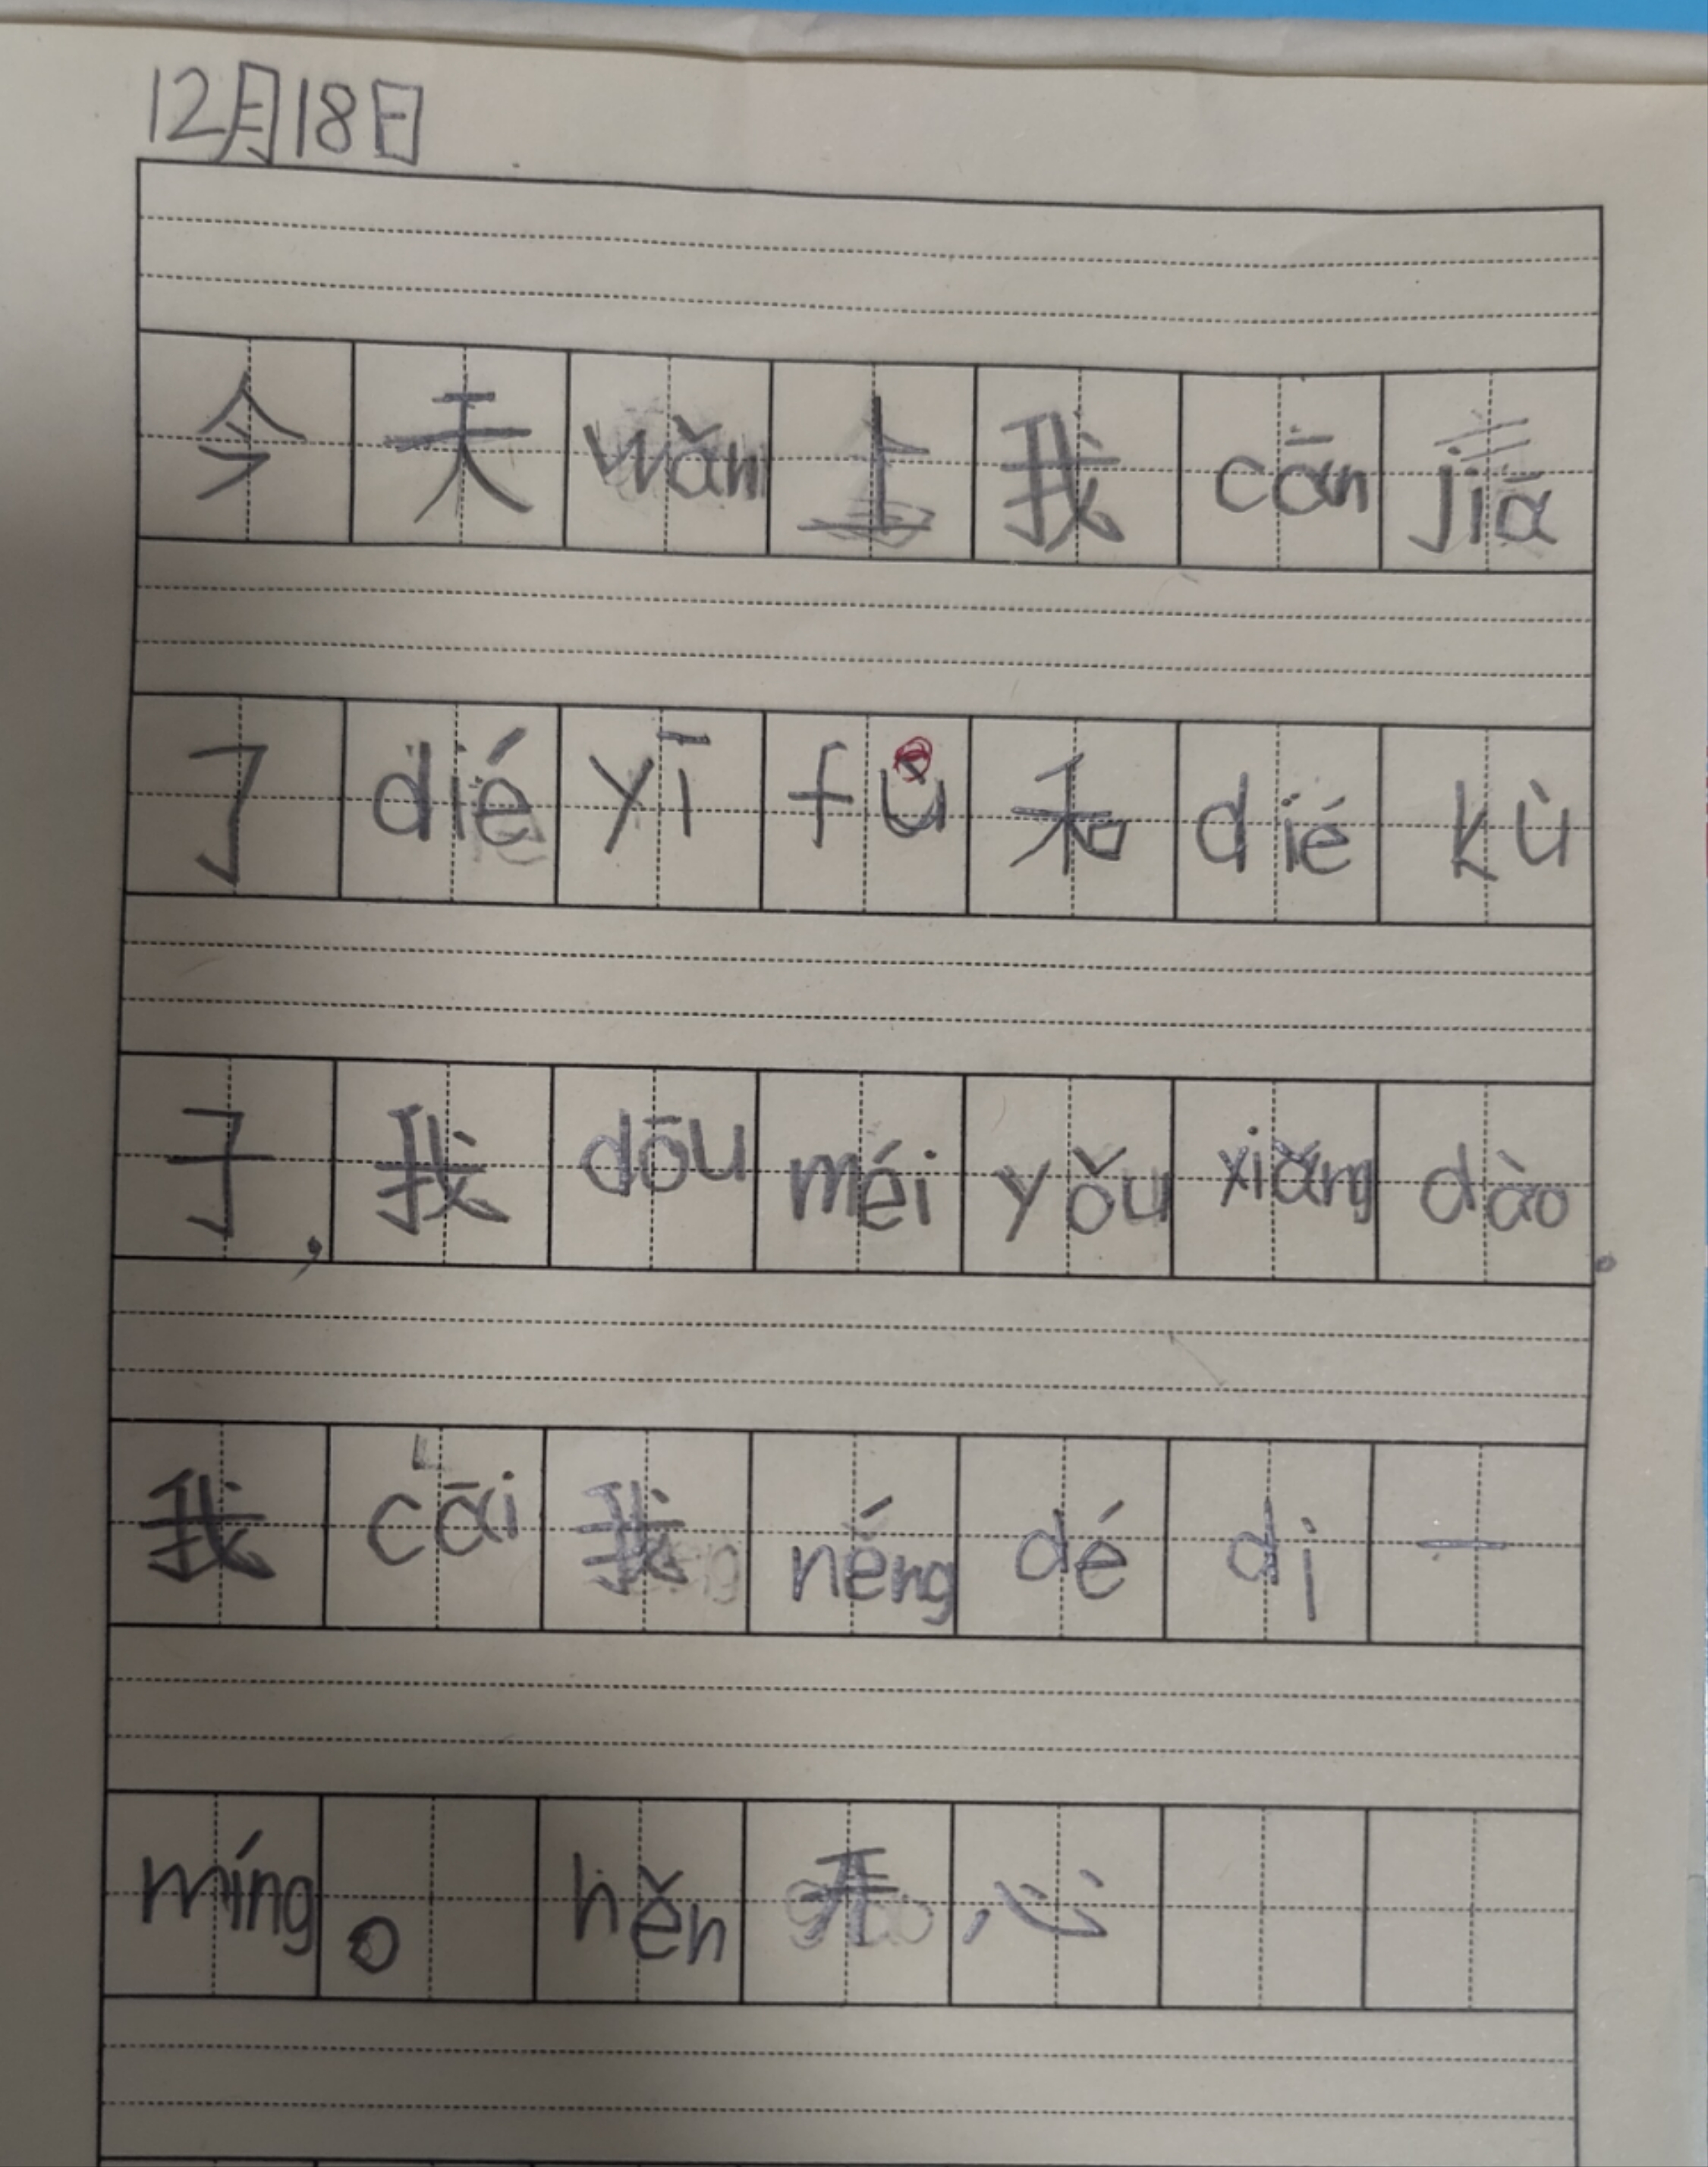 12月18日
今天wǎn上我cānjiā
了diéyīfù和diékù
子,我dōuméiyǒuxiǎngdào。
我cāi我néngdédi一
míng。hěn开心